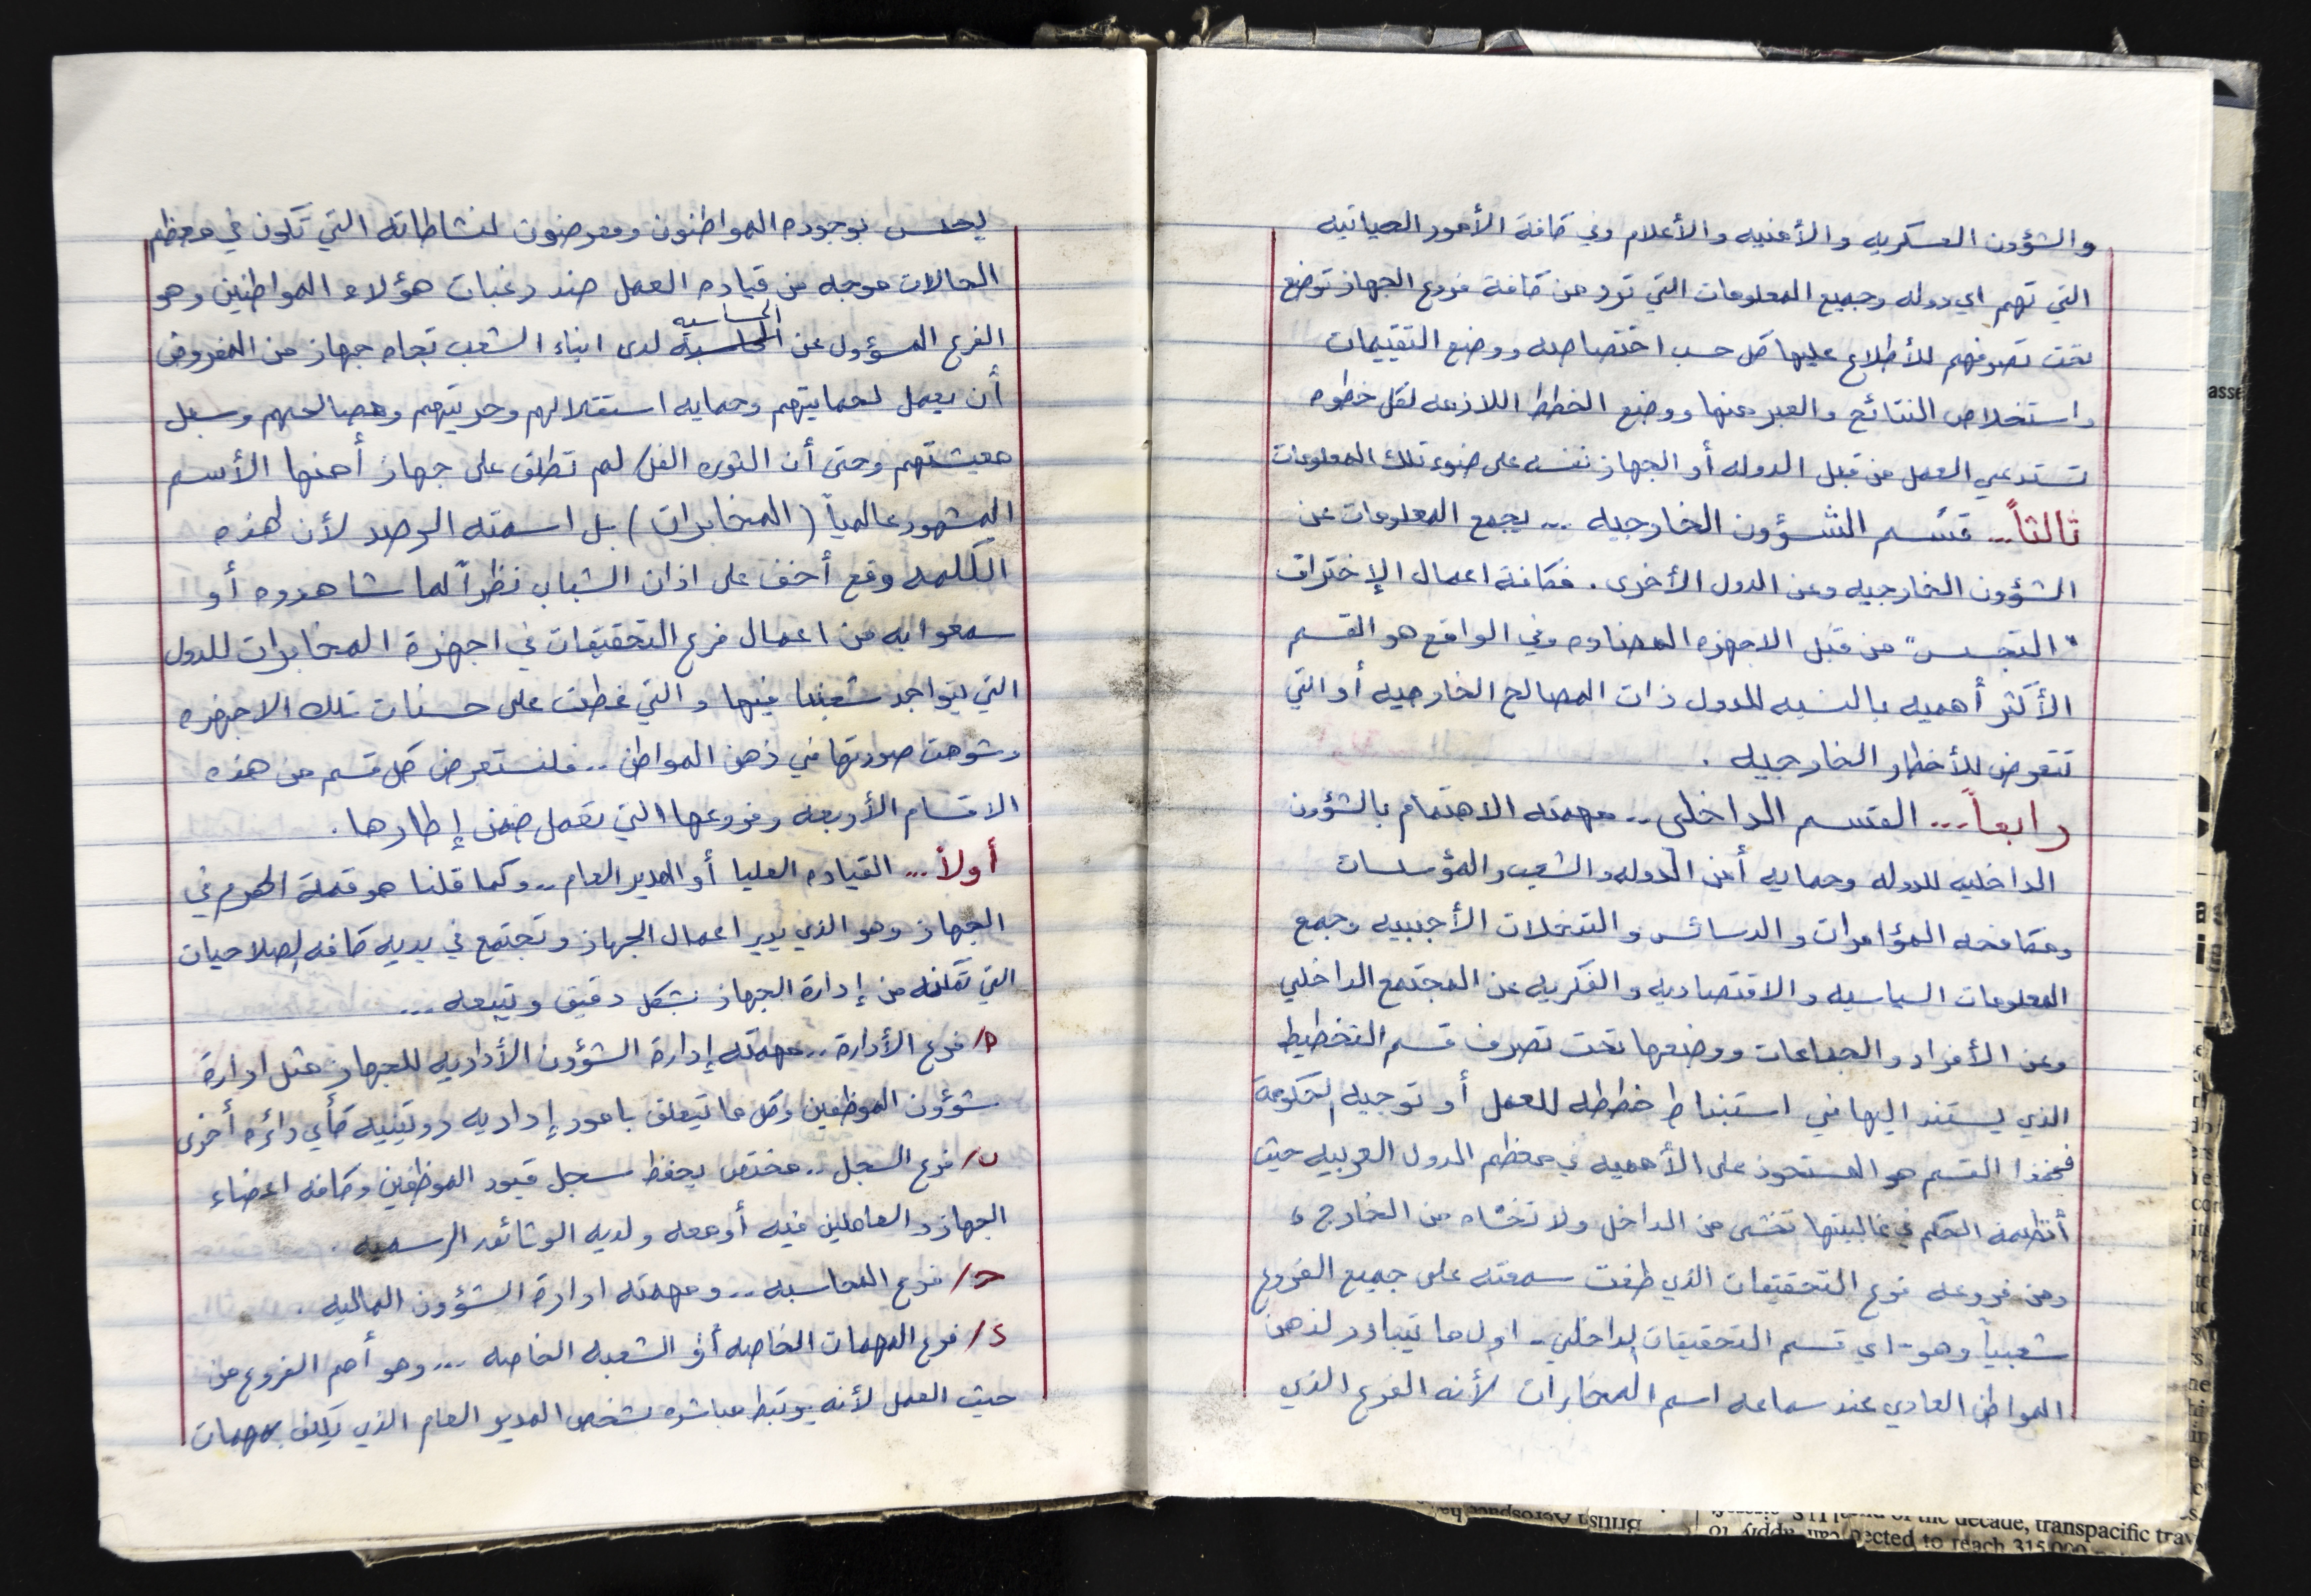 والشؤون العسكريه والأمنيه والأعلام وفي كافة الأمور الحياتيه
التي تهم اي دوله وجميع المعلومات التي ترد من كافة فروع الجهاز توضع
تحت تصرفهم للأطلاع عليها كل حسب اختصاصه ووضع التقييمات
واستخلاص النتائج والعبر منها ووضع الخطط اللازمه لكل خطوه
تستدعي العمل من قبل الدوله أو الجهاز نفسه على ضوء تلك المعلومات
ثالثاً... قسم الشؤون الخارجيه ... يجمع المعلومات عن
الشؤون الخارجيه وعن الدول الأخرى . فكافة اعمال الإختراق
"التجسس" من قبل الاجهزه المضاده وفي الواقع هو القسم
الأكثر أهميه بالنسبه للدول ذات المصالح الخارجيه أو التي
تتعرض للأخطار الخارجيه .
رابعاً... القسم الداخلي .. مهمته الاهتمام بالشؤون
الداخليه للدوله وحمايه أمن الدوله والشعب والمؤسسات
ومكافحه المؤامرات والدسائس والتدخلات الأجنبيه وجمع
المعلومات السياسيه والاقتصاديه والفكريه عن المجتمع الداخلي
وعن الأفراد والجماعات ووضعها تحت تصرف قسم التخطيط
الذي يستند اليها في استنباط خططه للعمل أو توجيه الحكومة
فهذا القسم هو المستحوذ على الأهميه في معظم الدول العربيه حيث
أنظمه الحكم في غالبيتها تخشى من الداخل ولا تخشاه من الخارج ،
ومن فروعه فرع التحقيقات الذي طغت سمعته على جميع الفروع
شعبياً وهو - اي قسم التحقيقات الداخلي - اول ما يتبادر لذهن
المواطن العادي عند سماعه اسم المخابرات لأنه الفرع الذي
يحس بوجوده المواطنون ومعرضون لنشاطاته التي تكون في معظم
الحالات موجه من قياده العمل ضد رغبات هؤلاء المواطنين وهو
الحساسيه
الفرع المسؤول عن لدى ابناء الشعب تجاه جهاز من المفروض
أن يعمل لحمايتهم وحمايه استقلالهم وحريتهم ومصالحهم وسبل
معيشتهم وحتى أن الثوره الفل لم تطلق على جهاز أمنها الأسم
المشهور عالمياً (المخابرات) بل اسمته الرصد لأن لهذه
الكلمه وقع أخف على اذان الشباب نظراً لما شاهدوه أو
سمعوا به من اعمال فرع التحقيقات في اجهزة المخابرات للدول
التي يتواجد شعبنا فيها والتي غطت على حسنات تلك الاجهزه
وشوهت صورتها في ذهن المواطن .. فلنستعرض كل قسم من هذه
الاقسام الأربعه وفروعها التي تعمل ضمن إطارها .
أولاً... القياده العليا أو المدير العام .. وكما قلنا هو قمة الهرم في
الجهاز وهو الذي يدير اعمال الجهاز وتجتمع في يديه كافه الصلاحيات
التي تمكنه من إدارة الجهاز بشكل دقيق ويتبعه ...
ا/ فرع الأدارة .. مهمته إدارة الشؤون الأداريه للجهاز مثل ادارة
شؤون الموظفين وكل ما يتعلق بامور إداريه روتينيه كأي دائره أخرى
ب/ فرع السجل .. مختص بحفظ سجل قيود الموظفين وكافه اعضاء
الجهاز والعاملين فيه أو معه ولديه الوثائق الرسميه .
ج/ فرع المحاسبه .. ومهمته ادارة الشؤون الماليه .
د/ فرع المهمات الخاصه أو الشعبه الخاصه ... وهو أهم الفروع من
حيث العمل لأنه يرتبط مباشره بشخص المدير العام الذي يكلف بمهمات
asse
British Aerospace
of the decade, transpacific trav
call apply to
pected to reach 315,000